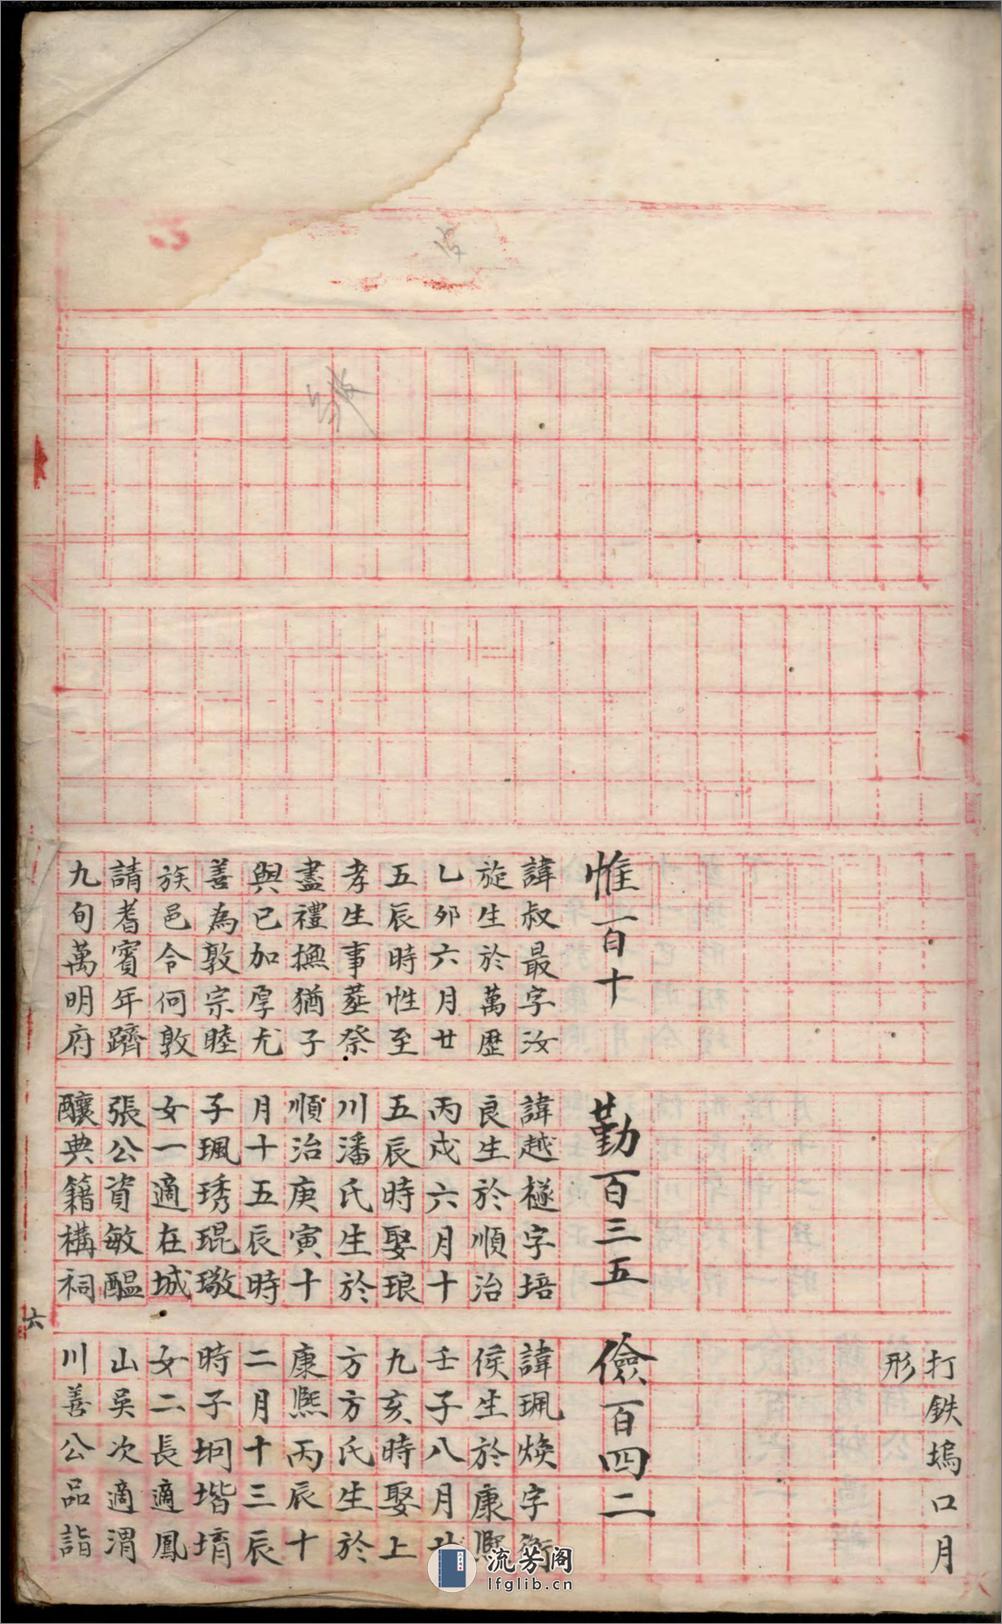 惟百十
諱叔最字汝
旋生於萬歷
乙卯六月廿
五辰時性至
孝生事塟祭
盡禮撫猶子
與已加厚尤
善為敦宗睦
族邑令何敦
請耆賓年躋
九旬萬明府
勤百三五
諱越檖字培
良生於順治
丙戌六月十
五辰時娶琅
川潘氏生於
順治庚寅十
月十五辰時
子珮琇琨璥
女一適在城
張公資敏醞
釀典籍構祠
打鉄塢口月
形
儉百四二
諱珮煥字
侯生於康熙
壬子八月
九亥時娶上
方方氏生於
康熙丙辰十
二月十三辰
時子坰堦堉
女二長適鳳
山吳次適渭
川善公品詣
六
流芳阁
lfglib.cn